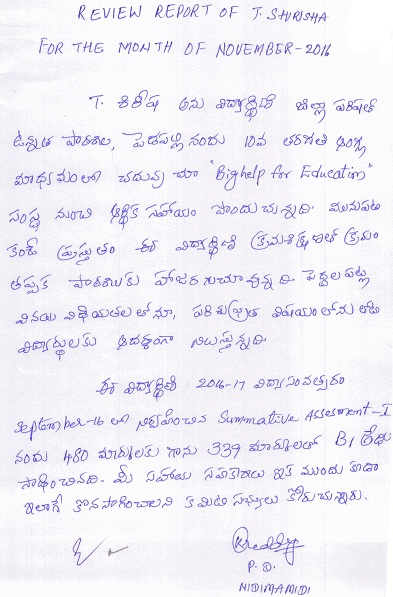 REVIEW REPORT OF T. SHIRISHA
FOR THE MONTH OF NOVEMBER-2016
T. శిరీష అను విద్యార్థిణి జిల్లా పరిషత్
ఉన్నత పాఠశాల, పెదపల్లి నందు 10వ తరగతి ఆంగ్ల
మాధ్యమంలో చదువుచూ "Bighelp for Education"
సంస్థ నుంచి ఆర్థిక సహాయం పొందుచున్నది. మునుపటి
కంటే ప్రస్తుతం ఈ విద్యార్థిణి క్రమశిక్షణతో క్రమం
తప్పక పాఠశాలకు హాజరగుచూవున్నది. పెద్దల పట్ల
వినయ విధేయతలలోనూ, పరిశుభ్రత విషయంలోను తోటి
విద్యార్థులకు ఆదర్శంగా నిలుస్తున్నది.
ఈ విద్యార్థిణి 2016-17 విద్యాసంవత్సరం
September-16 లో నిర్వహించిన Summative Assessment-I
నందు 480 మార్కులకు గాను 339 మార్కులతో B1 గ్రేడు
సాధించినది. మీ సహాయ సహకారాలు ఇక ముందు కూడా
ఇలాగే కొనసాగించాలని కమిటి సభ్యులు కోరుచున్నారు.
P.D.
NIDIMAMIDI